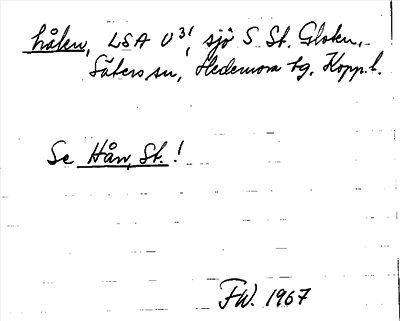 hålen, LSA U 31, sjö S St. Gloten,
Säters sn, Hedemora tg, Kopp. l.
Se Hån, St.!
FW. 1967